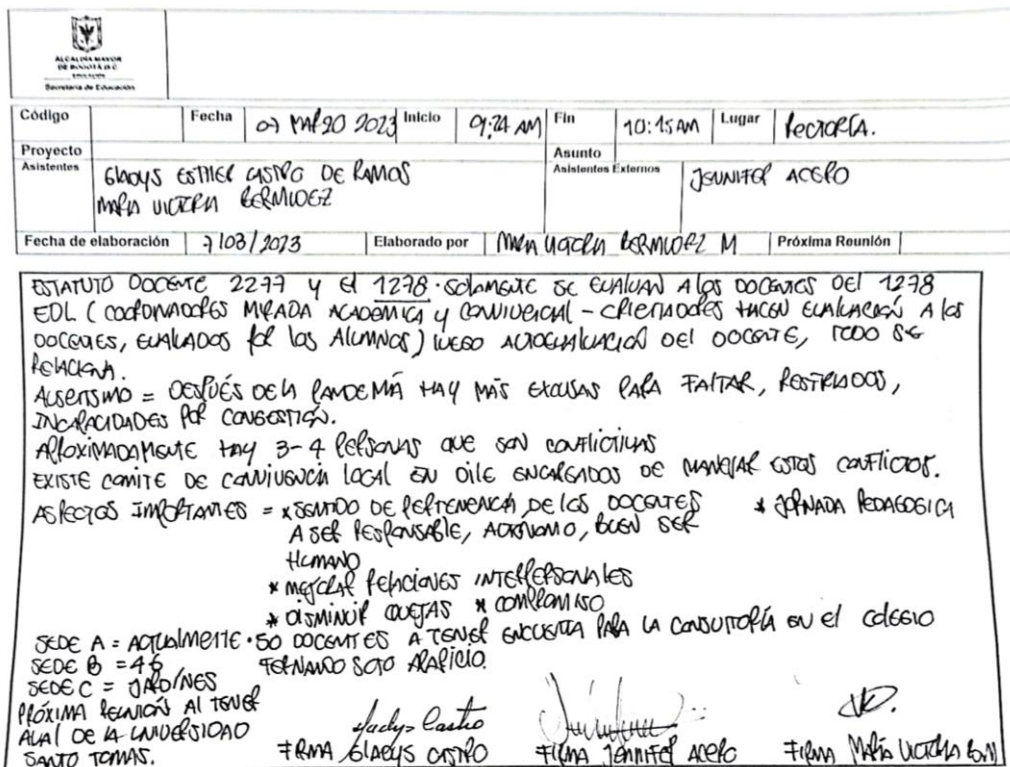 ALCALDÍA MAYOR
DE BOGOTÁ D.C.
EDUCACIÓN
Secretaría de Educación
Código Fecha 07 MARZO 2023 Inicio 9:24 AM Fin 10:15 AM Lugar RECTORÍA.
Proyecto Asunto
Asistentes GLADYS ESTHER CASTRO DE RAMOS Asistentes Externos JENNIFER ACERO
MARIA VICTORIA BERMUDEZ
Fecha de elaboración 7/03/2023 Elaborado por MARIA VICTORIA BERMUDEZ M Próxima Reunión
ESTATUTO DOCENTE 2277 y El 1278. SOLAMENTE SE EVALUAN A LOS DOCENTES DEL 1278
EDL (COORDINADORES MIRADA ACADEMICA y CONVIVENCIAL - ORIENTADORES HACEN EVALUACIÓN A los
DOCENTES, EVALUADOS POR los AlUMNOS) LUEGO AUTOEVALUACIÓN DEl DOCENTE, TODO SE
RELACIONA.
AUSENTISMO = DESPUÉS DE LA PANDEMIA HAY MÁS EXCUSAS PARA FALTAR, RESFRIADOS,
INCAPACIDADES POR CONGESTIÓN.
APROXIMADAMENTE HAY 3-4 PERSONAS QUE SON CONFLICTIVAS
EXISTE COMITE DE CONVIVENCIA LOCAL EN DILE ENCARGADOS DE MANEJAR ESTOS CONFLICTOS.
ASPECTOS IMPORTANTES = * SENTIDO DE PERTENENCIA DE LOS DOCENTES * JORNADA PEDAGOGICA
A SER RESPONSABLE, AUTÓNOMO, BUEN SER
HUMANO
* MEJORAR RELACIONES INTERPERSONALES
* DISMINUIR QUEJAS * COMPROMISO
SEDE A = ACTUALMENTE · 50 DOCENTES A TENER ENCUESTA PARA LA CONSULTORÍA EN El COLEGIO
SEDE B = 46 FERNANDO SOTO APARICIO.
SEDE C = JARDINES
PRÓXIMA REUNIÓN Al TENER
AVAl DE LA UNIVERSIDAD Gladys Castro
SANTO TOMAS. FIRMA GLADYS CASTRO FIRMA JENNIFER ACERO FIRMA MARÍA VICTORIA B.M